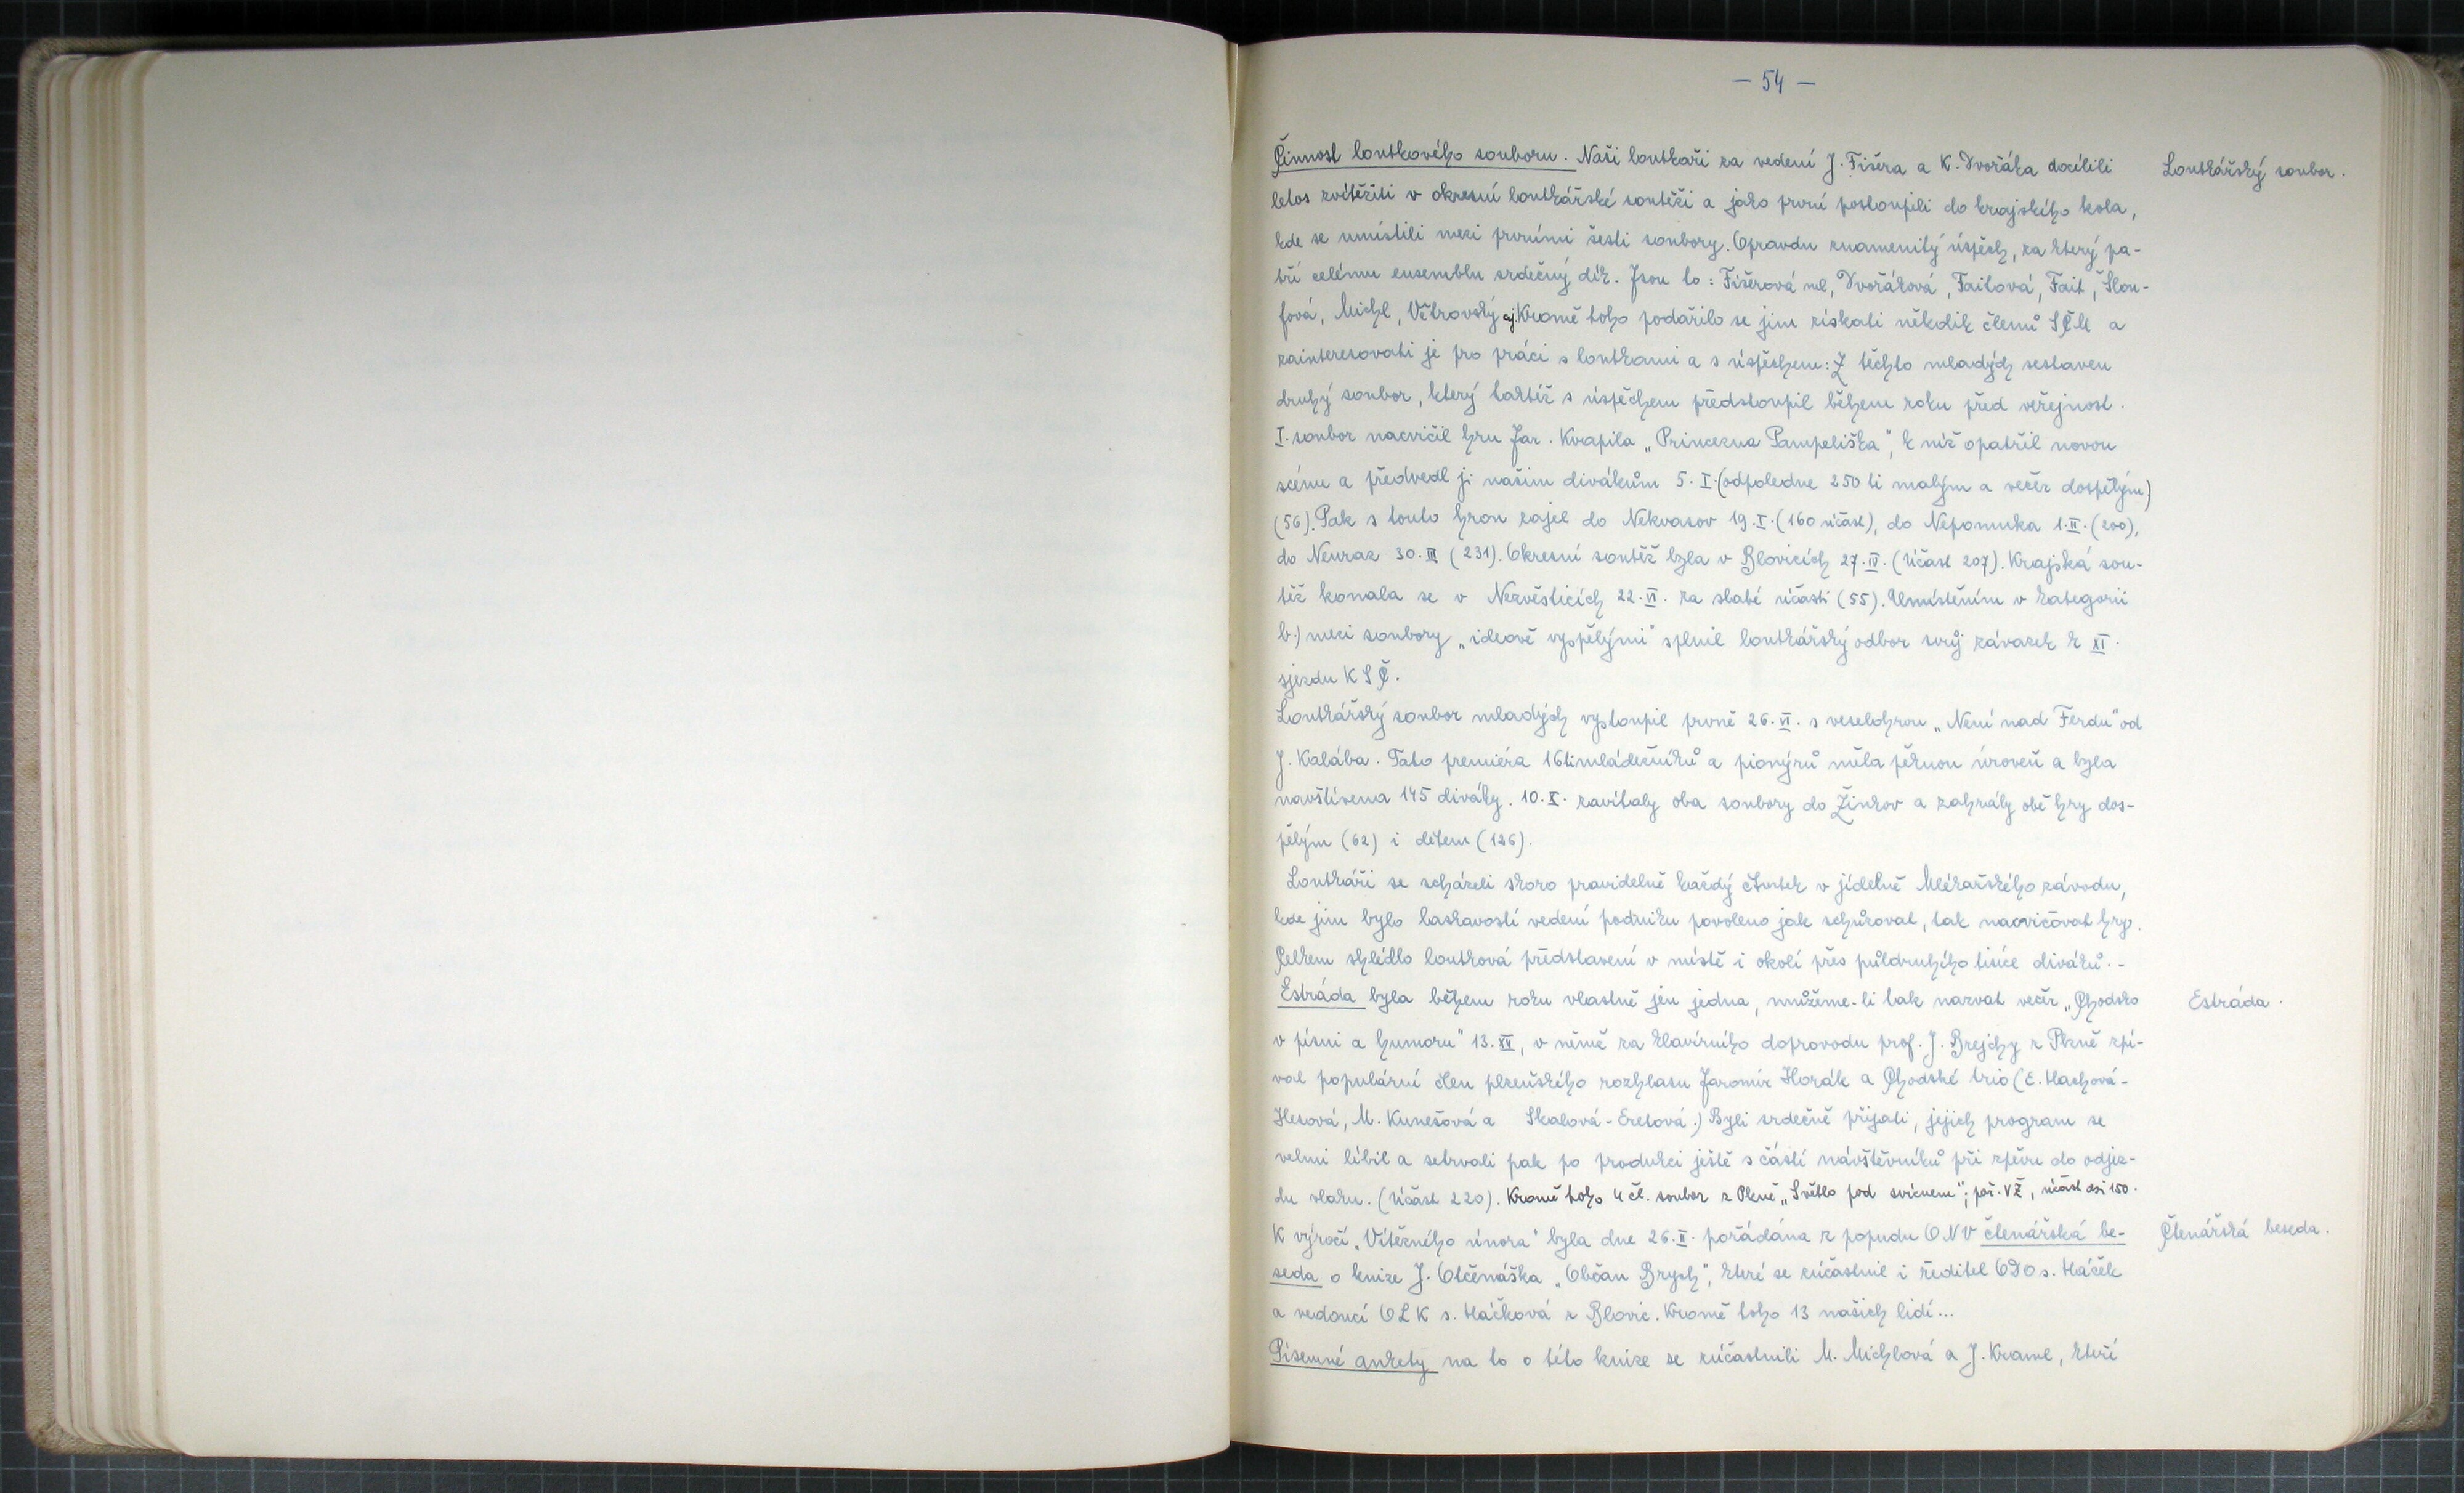 — 54 —
Činnost loutkového souboru. Naši loutkaři za vedení J. Fišera a K. Dvořáka docílili
Loutkářský soubor.
letos zvítěziti v okresní loutkářské soutěži a jako první postoupili do krajského kola,
kde se umístili mezi prvními šesti soubory. Opravdu znamenitý úspěch, za který pa-
tří celému ensemblu srdečný dík. Jsou to: Fišerová ml, Dvořáková, Faitová, Fait, Slou-
fová, Michl, Větrovský aj. Kromě toho podařilo se jim získati několik členů SČM a
zainteresovati je pro práci s loutkami a s úspěchem: Z těchto mladých sestaven
druhý soubor, který taktéž s úspěchem předstoupil během roku před veřejnost.
I. soubor nacvičil hru Jar. Kvapila „Princezna Pampeliška", k níž opatřil novou
scénu a předvedl ji našim divákům 5. I. (odpoledne 250 ti malým a večer dospělým)
(56). Pak s touto hrou zajel do Nekvasov 19. I. (160 účast), do Nepomuka 1. II. (200),
do Neuraz 30. III (231). Okresní soutěž byla v Blovicích 27. IV. (účast 207). Krajská sou-
těž konala se v Nezvěsticích 22. VI. za slabé účasti (55). Umístěním v kategorii
b.) mezi soubory „ideově vyspělými" splnil loutkářský odbor svůj závazek k XI.
sjezdu KSČ.
Loutkářský soubor mladých vystoupil prvně 26. VI. s veselohrou „Není nad Ferdu" od
J. Kalába. Tato premiéra 16ti mládežníků a pionýrů měla pěknou úroveň a byla
navštívena 145 diváky. 10. X. zavítaly oba soubory do Žinkov a zahrály obě hry dos-
pělým (62) i dětem (126).
Loutkáři se scházeli skoro pravidelně každý čtvrtek v jídelně Mlékařského závodu,
kde jim bylo laskavostí vedení podniku povoleno jak schůzovat, tak nacvičovat hry.
Celkem shlédlo loutková představení v místě i okolí přes půldruhého tisíce diváků. -
Estráda byla během roku vlastně jen jedna, můžeme-li tak nazvat večer „Chodsko
Estráda.
v písni a humoru" 13. XII, v němž za klavírního doprovodu prof. J. Brejchy z Plzně zpí-
val populární člen plzeňského rozhlasu Jaromír Horák a Chodské trio (E. Hachová-
Hesová, M. Kunešová a Skalová-Eretová.) Byli srdečně přijati, jejich program se
velmi líbil a setrvali pak po produkci ještě s částí návštěvníků při zpěvu do odjez-
du vlaku. (Účast 220). Kromě toho 4 čl. soubor z Plzně „Světlo pod svícnem"; poř. VŽ, účast asi 150.
K výročí „Vítězného února" byla dne 26. II. pořádána z popudu ONV čtenářská be-
Čtenářská beseda.
seda o knize J. Otčenáška „Občan Brych", které se zúčastnil i ředitel ODO s. Háček
a vedoucí OLK s. Háčková z Blovic. Kromě toho 13 našich lidí...
Písemné ankety na to o této knize se zúčastnili M. Michlová a J. Kraml, kteří